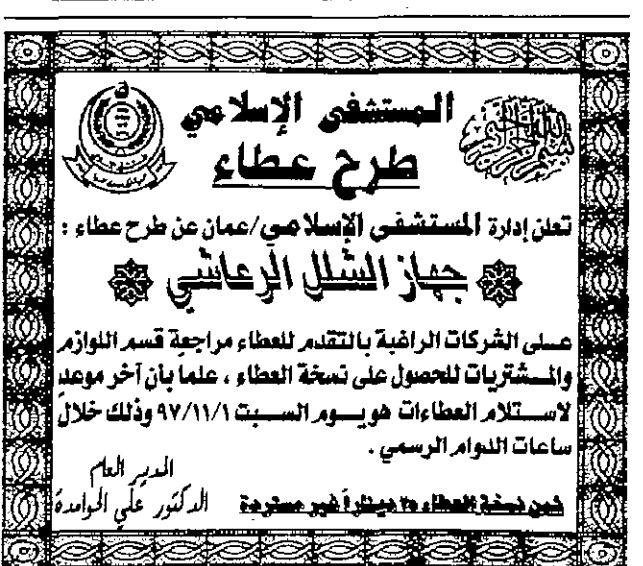 بسم الله الرحمن الرحيم
المستشفى الإسلامي
طرح عطاء
تعلن إدارة المستشفى الإسلامي/عمان عن طرح عطاء :
جهاز الشلل الرعاشي
على الشركات الراغبة بالتقدم للعطاء مراجعة قسم اللوازم
والمشتريات للحصول على نسخة العطاء ، علما بأن آخر موعد
لاستلام العطاءات هو يوم السبت ٩٧/١١/١ وذلك خلال
ساعات الدوام الرسمي .
المدير العام
الدكتور علي الحوامدة
ثمن نسخة العطاء ٢٥ ديناراً غير مستردة